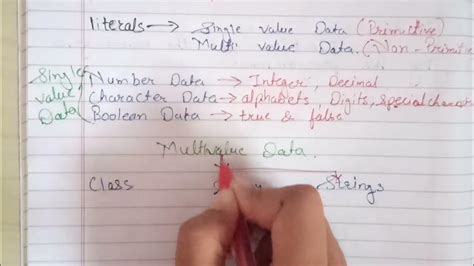 literals → Single value Data (Primitive)
Multi value Data. (Non-Primitive
Single value Data
Number Data → Integer, Decimal
Character Data → alphabets Digits, special charac
Boolean Data → true & false
Multivalue Data.
Class Strings